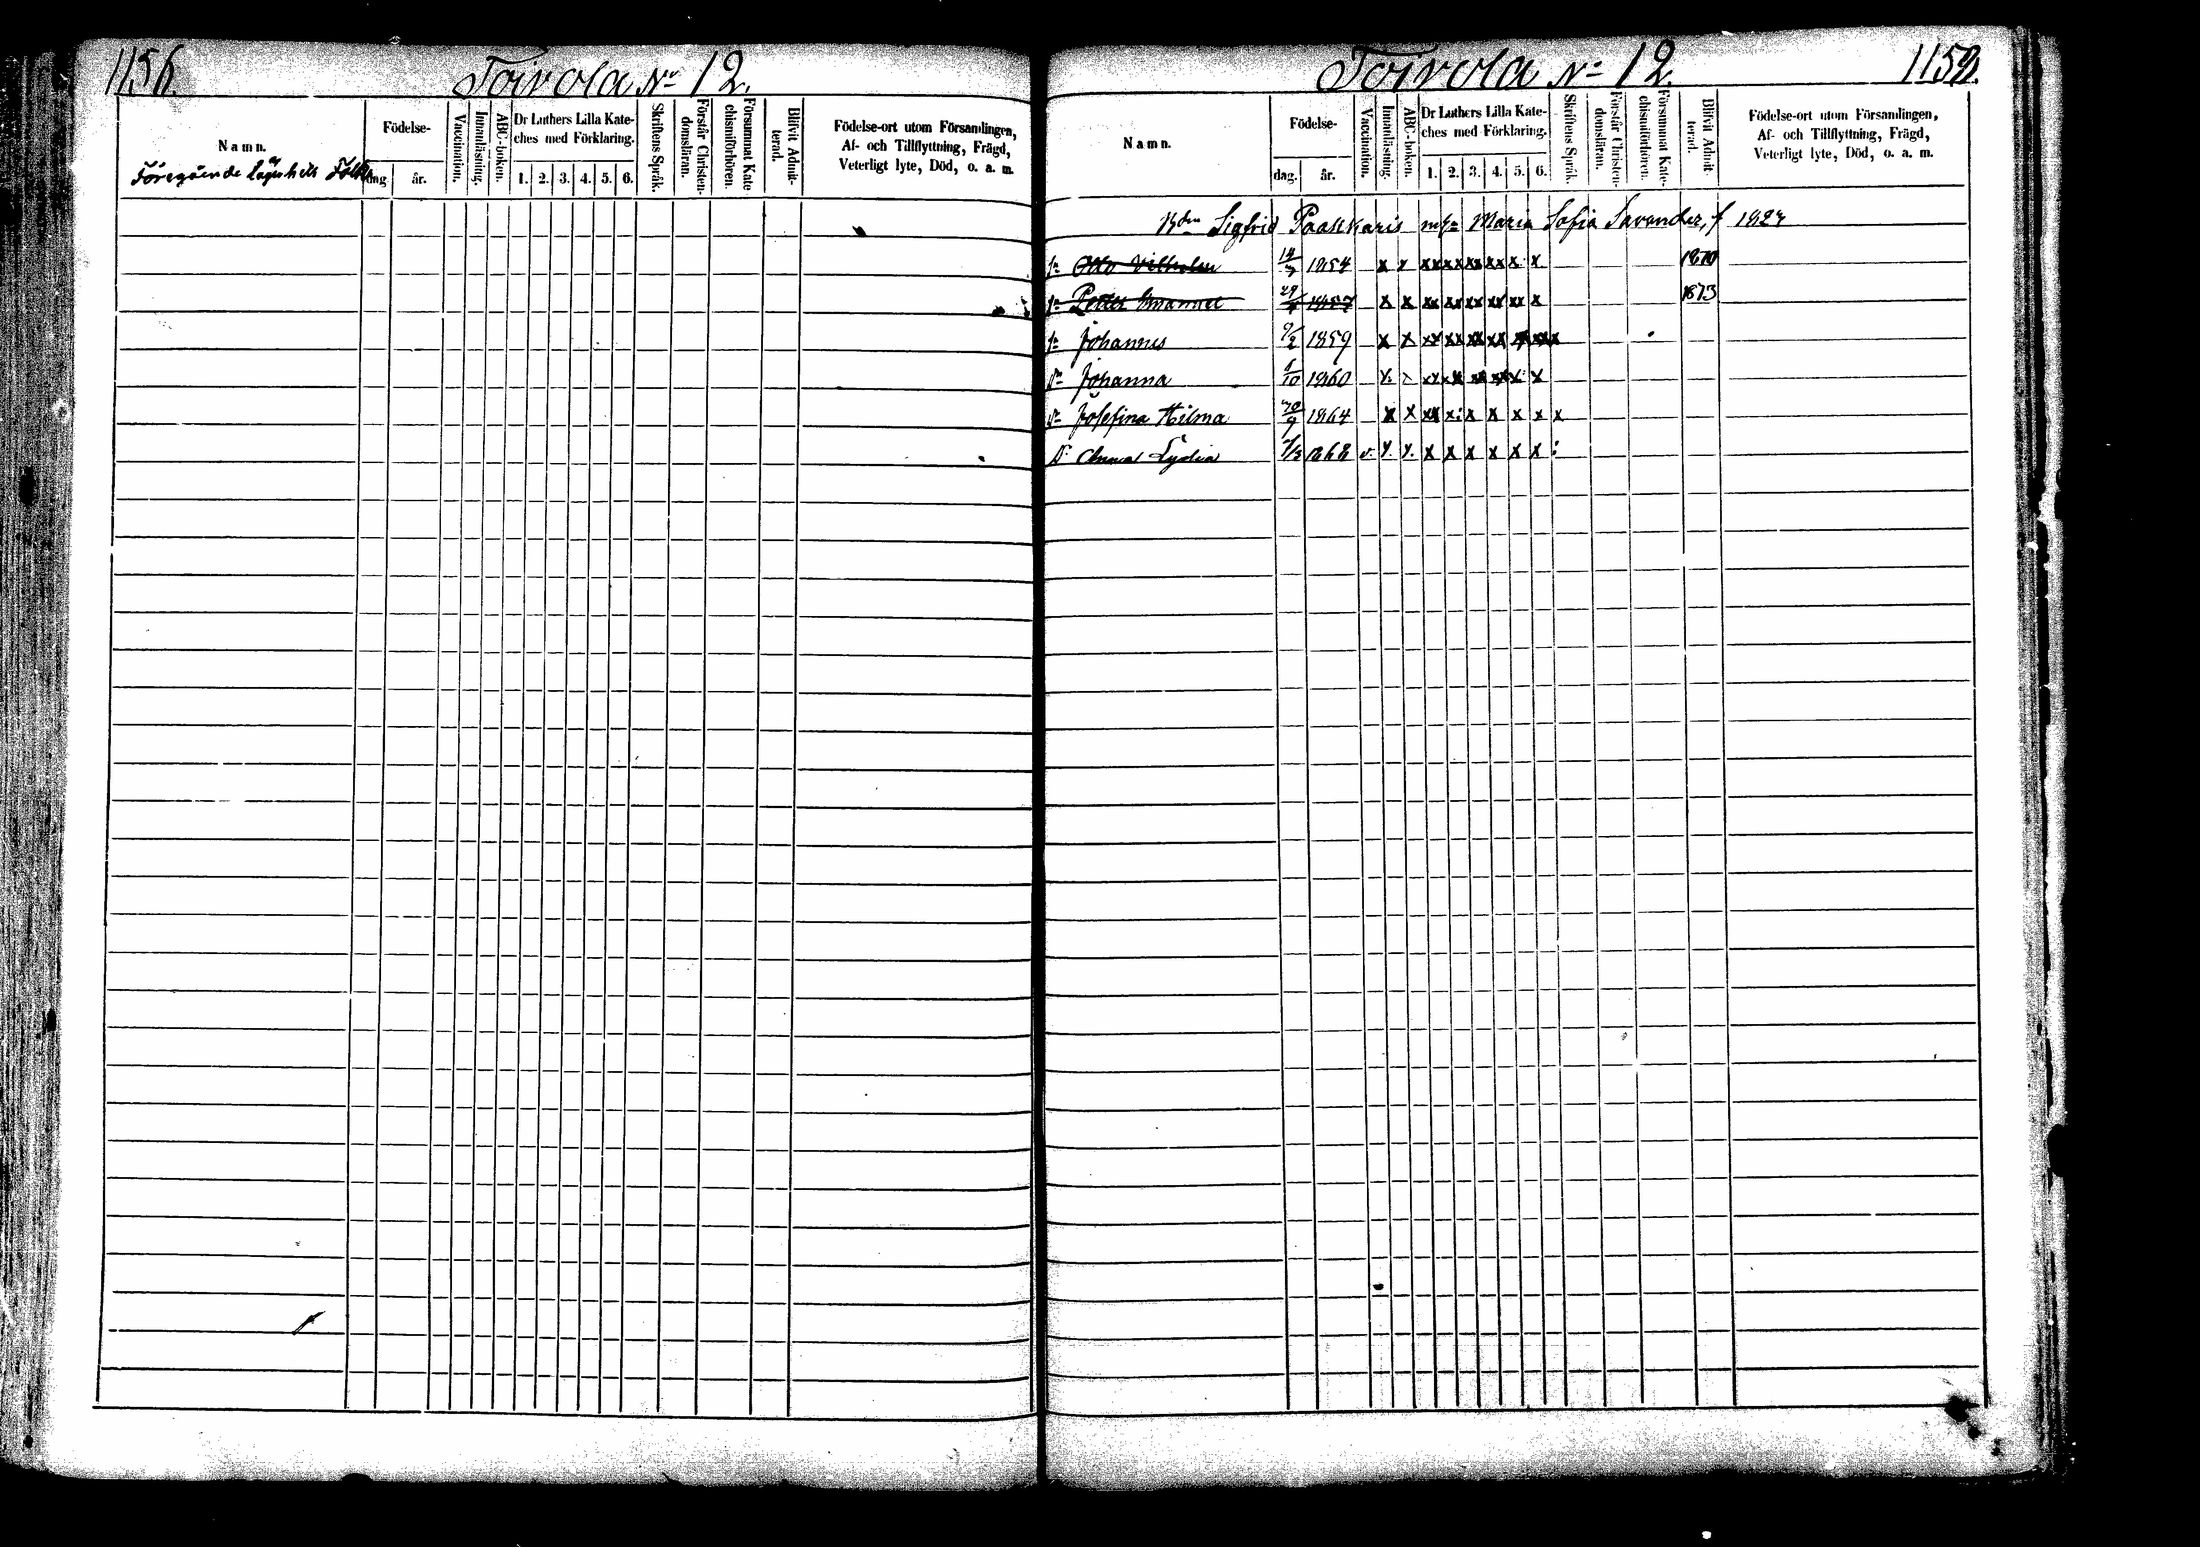 1156.
Toivola No 12.
Namn.
Födelse-
dag
år.
Vaccination.
Innanläsning.
ABC-boken.
Dr Luthers Lilla Kate-
ches med Förklaring.
1. 2. 3. 4. 5. 6.
Skriftens Språk.
Förstår Christen-
domsläran.
Försummat Kate
chismiförhören.
Blifvit Admit-
terad.
Födelse-ort utom Församlingen,
Af- och Tillflyttning, Frägd,
Veterligt lyte, Död, o. a. m.
Föregående Lägenhets Folk
Toivola No 12.
Namn.
Födelse-
dag.
år.
Vaccination.
Innanläsning.
ABC-boken.
Dr Luthers Lilla Kate-
ches med Förklaring.
1. 2. 3. 4. 5. 6.
Skriftens Språk.
Förstår Christen-
domsläran.
Försummat Kate-
chismiförhören.
Blifvit Admit-
terad.
Födelse-ort utom Församlingen,
Af- och Tillflyttning, Frägd,
Veterligt lyte, Död, o. a. m.
Sigfrid Maria Sofia f 1827
Otto Vilhelm 1854 x x xx xx xx xx x x 1870
Petter Emanuel 1857 x x xx xx xx xx xx x 1873
Johannes 9/2 1859 x x xx xx xx xx
Johanna 6/10 1860 x x
Josefina Hilma 1864 x x xx x x x x x x
Anna Lydia 1868 v. x x x x x x x x